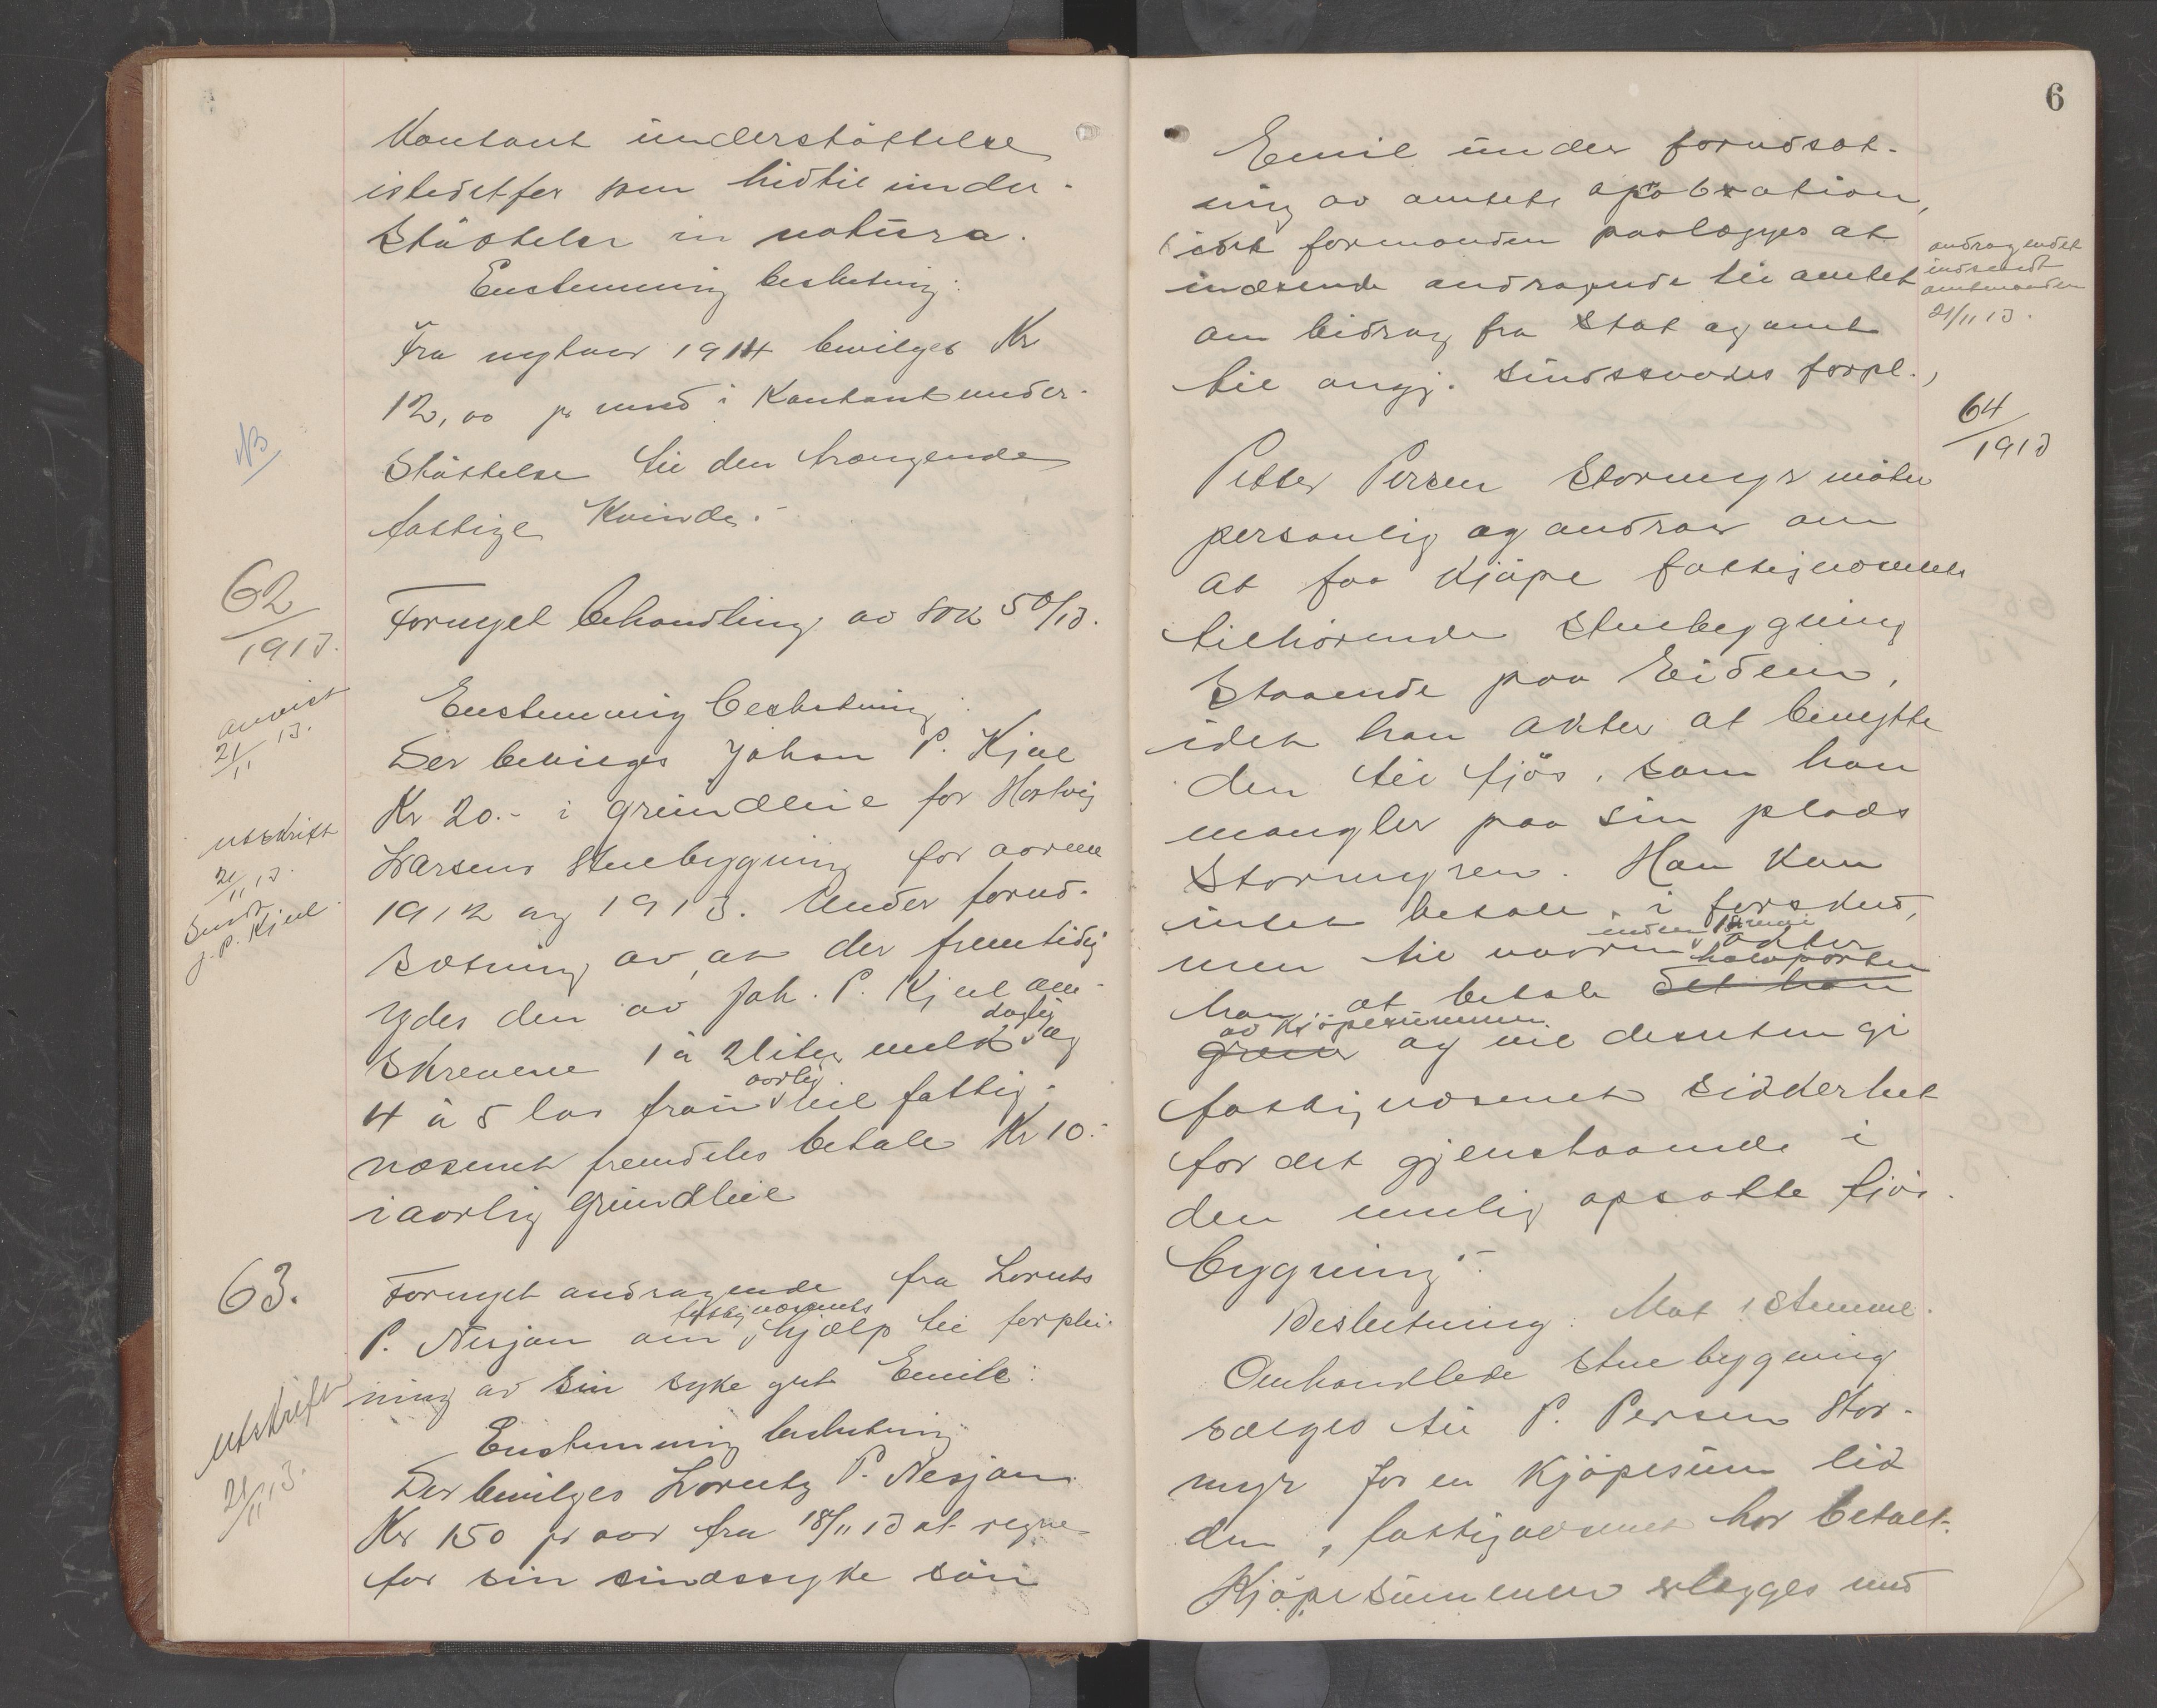 Kontant understøttelse
istedetfor som hidtil under-
støttelse in natura.
Enstemmig beslutning:
Fra nytaar 1914 bevilges Kr
12,00 pr mnd i Kontant under-
støttelse til den trængende
NB
fattige Kvinde.-
62/1913.
Fornyet behandling av sak 50/13.
anvist
21/11 13.
Enstemmig beslutning:
Der bevilges Johan P. Kjul
Kr 20.- i grundleie for Hartvig
utskrift
21/11 13.
sendt
J. P. Kjul
Larsens Stuebygning for aarene
1912 og 1913. Under forud-
sætning av, at der fremtidig
ydes den av Joh. P. Kjul om-
skrevne 1 à 2 liter melk daglig og
4 à 5 las frau aarlig vil fattig-
væsenet fremdeles betale Kr 10.-
i aarlig grundleie
63.
Fornyet andragende fra Lorents
P. Nesjan om fattigvæsenets hjælp til forplei-
ning av sin syke gut Emil:
utskrift
21/11 13.
Enstemmig beslutning:
Der bevilges Lorentz P. Nesjan
Kr 150 pr aar fra 18/11 13 at regne
for sin sindssyke søn
6
Emil under forudsæt-
ning av amtets apobration,
idet formanden paalægges at
indsende andragende til amtet
om bidrag fra Stat og amt
til angj. sindssvages forpl.,
andragendet
indsendt
amtmanden
21/11 13.
64/1913
Petter Persen Stormyr møter
personlig og andrar om
at faa Kjøpe fattigvæsenets
tilhørende Stuebygning
Staaende paa Eidem,
idet han akter at benytte
den til fjøs, som han
mangler paa sin plads
Stormyren. Han kan
intet betale i forskud,
men til vaaren inden 1 juni akter
han at betale det han halvparten
av Kjøpesummen og vil desuten gi
fattigvæsenet sikkerhet
for det gjenstaaende i
den nulig opsatte fjøs-
bygning.-
Beslutning: Mot 1 Stemme.
Omhandlede Stuebygning
sælges til P. Persen Stor-
myr for en Kjøpesum lik
den, fattigvæsenet har betalt.
Kjøpesummen erlægges med